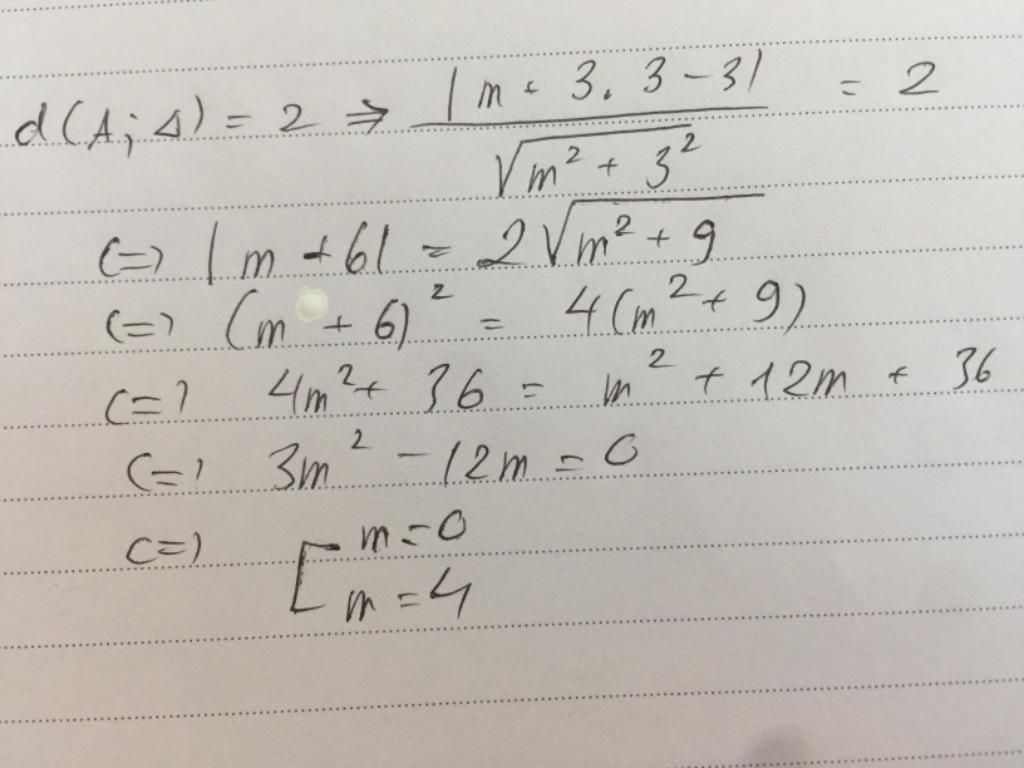 d(A; Δ) = 2 => |m + 3. 3 - 3| / √m² + 3² = 2
<=> |m + 6| = 2√m² + 9
<=> (m + 6)² = 4(m² + 9)
<=> 4m² + 36 = m² + 12m + 36
<=> 3m² - 12m = 0
<=> [ m = 0
m = 4